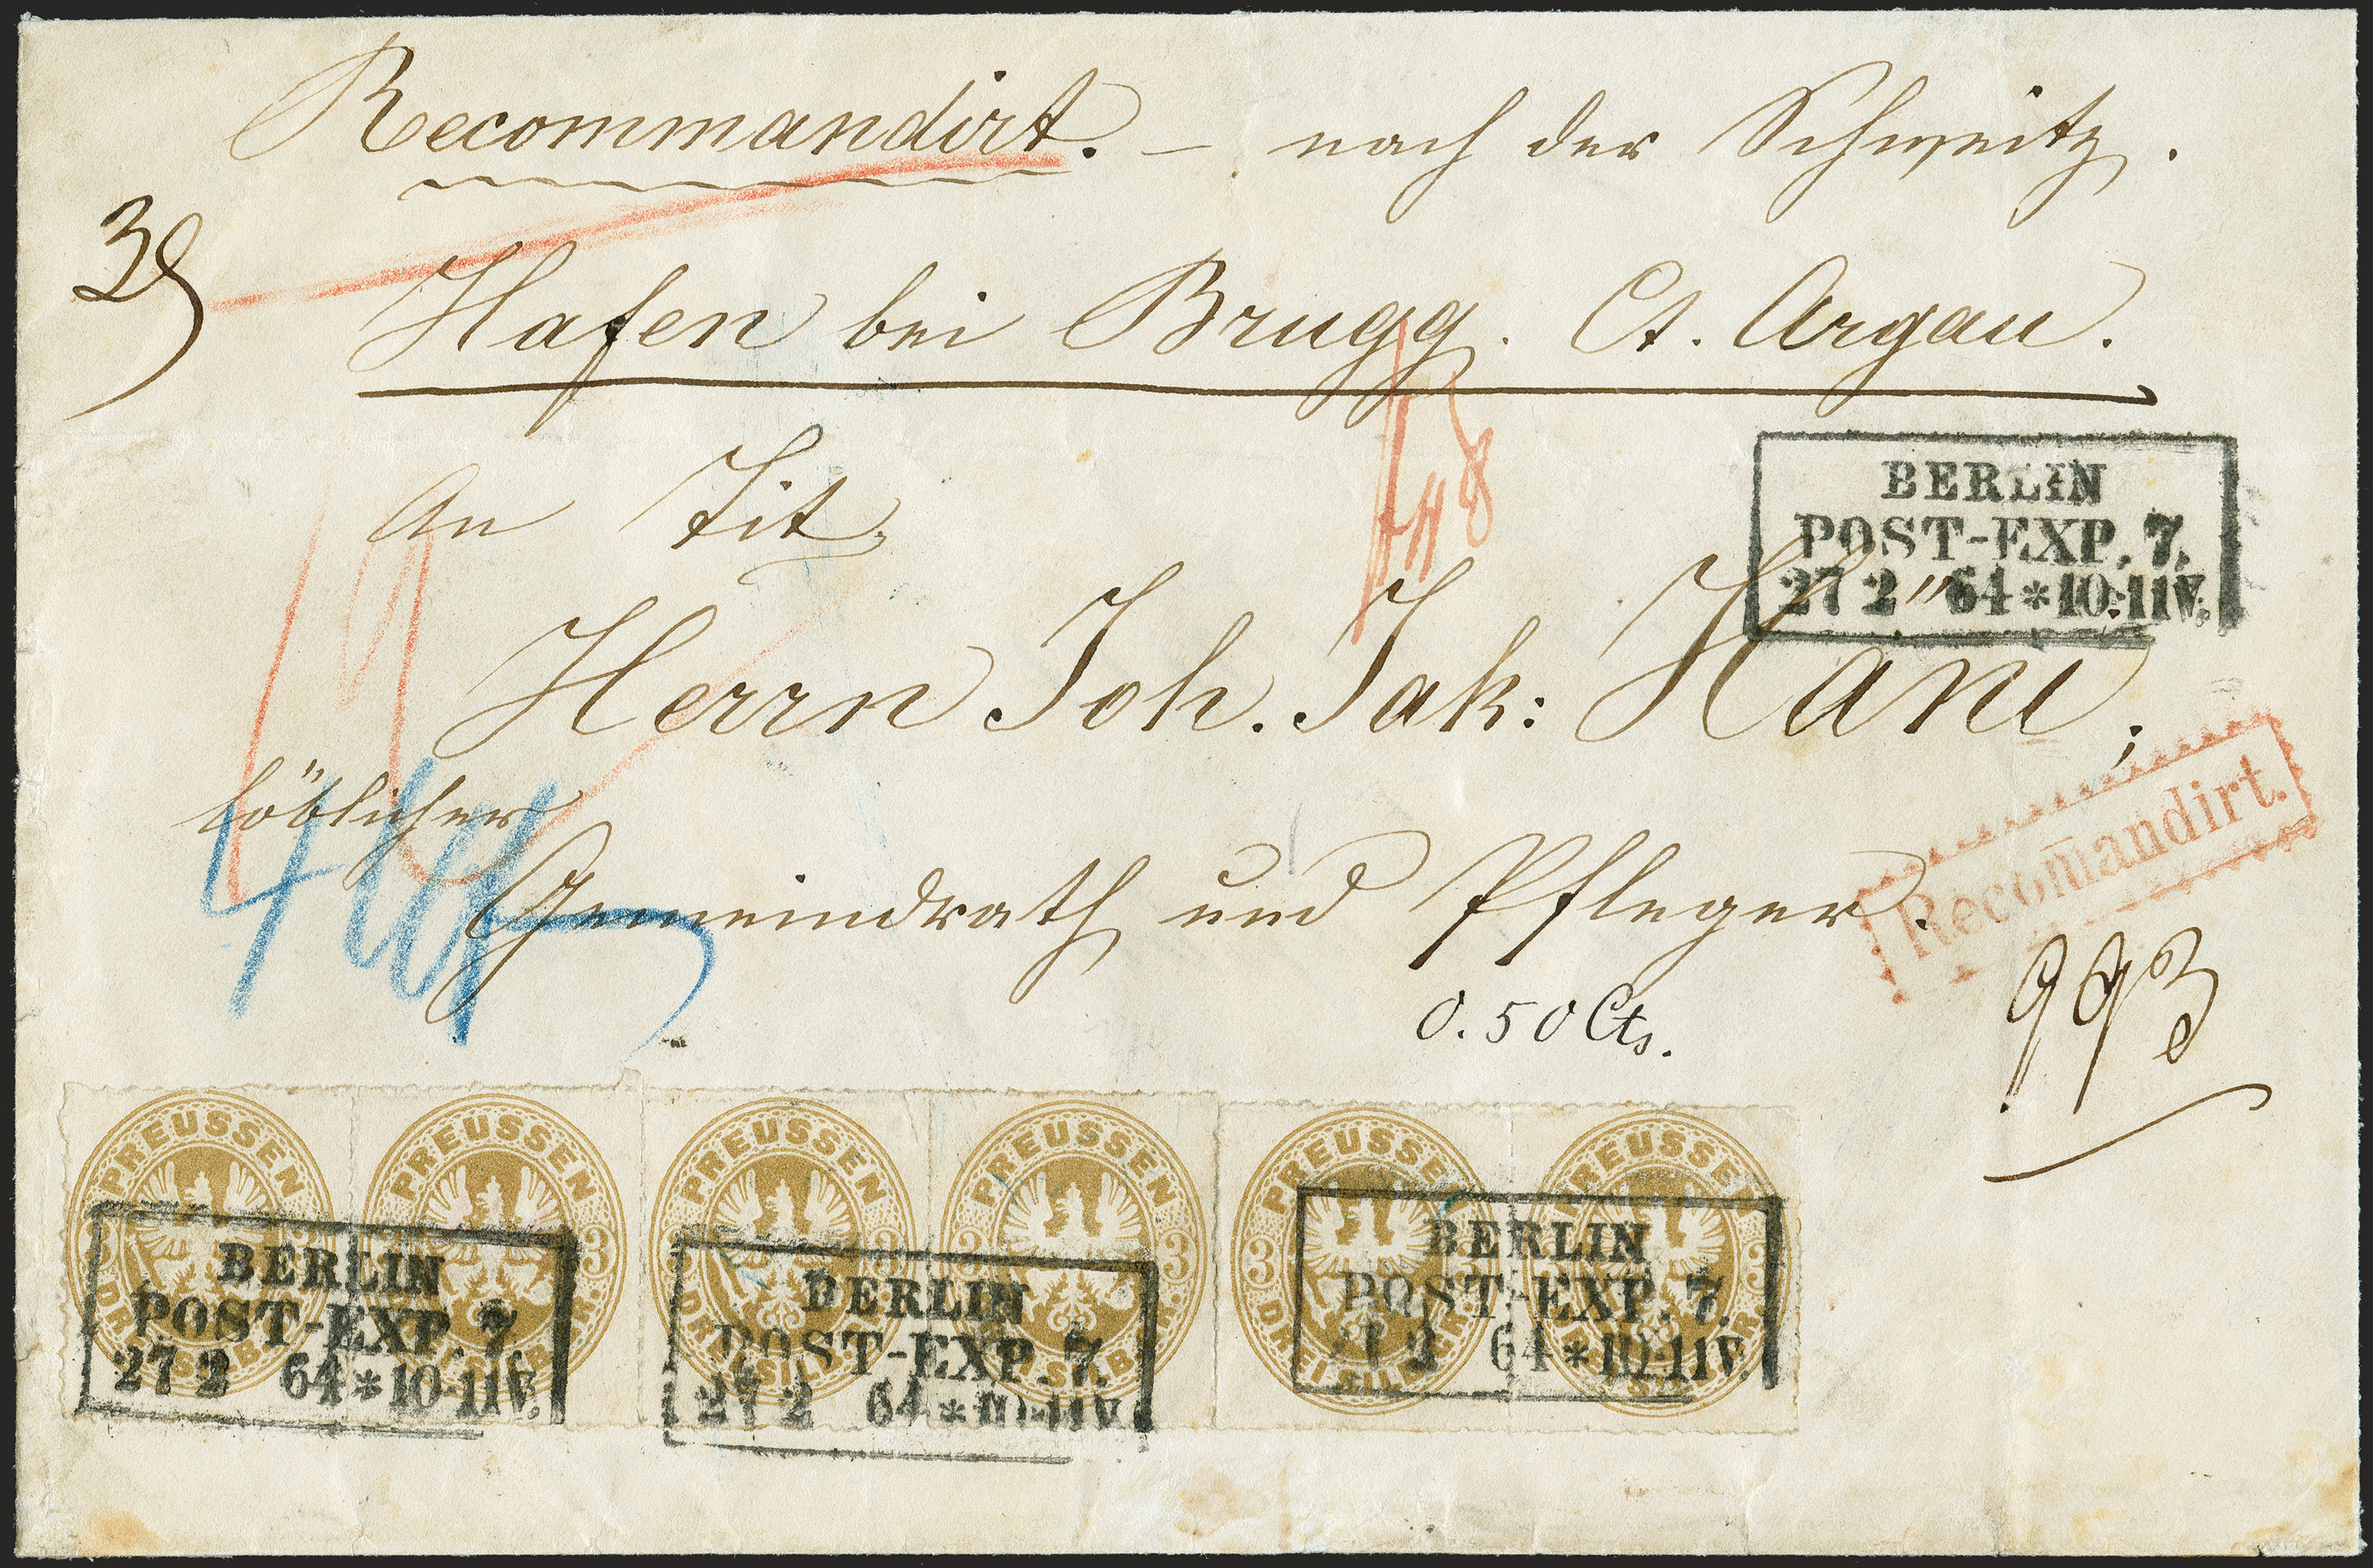 Recommandirt. – nach der Schweitz.
Hafen bei Brugg. Ct. Argau.
An Tit.
BERLIN
POST-EXP. 7.
27 2 64 * 10-11V.
Herrn Joh. Jak: Häni;
löblicher
Gemeindrath und Pfleger.
Recom̄andirt.
0.50 Cts.
993
PREUSSEN
PREUSSEN
PREUSSEN
PREUSSEN
PREUSSEN
PREUSSEN
3 3
DREI SILB. GR.
BERLIN
POST-EXP. 7.
27 2 64 * 10-11V.
BERLIN
POST-EXP. 7.
27 2 64 * 10-11V.
BERLIN
POST-EXP. 7.
27 2 64 * 10-11V.